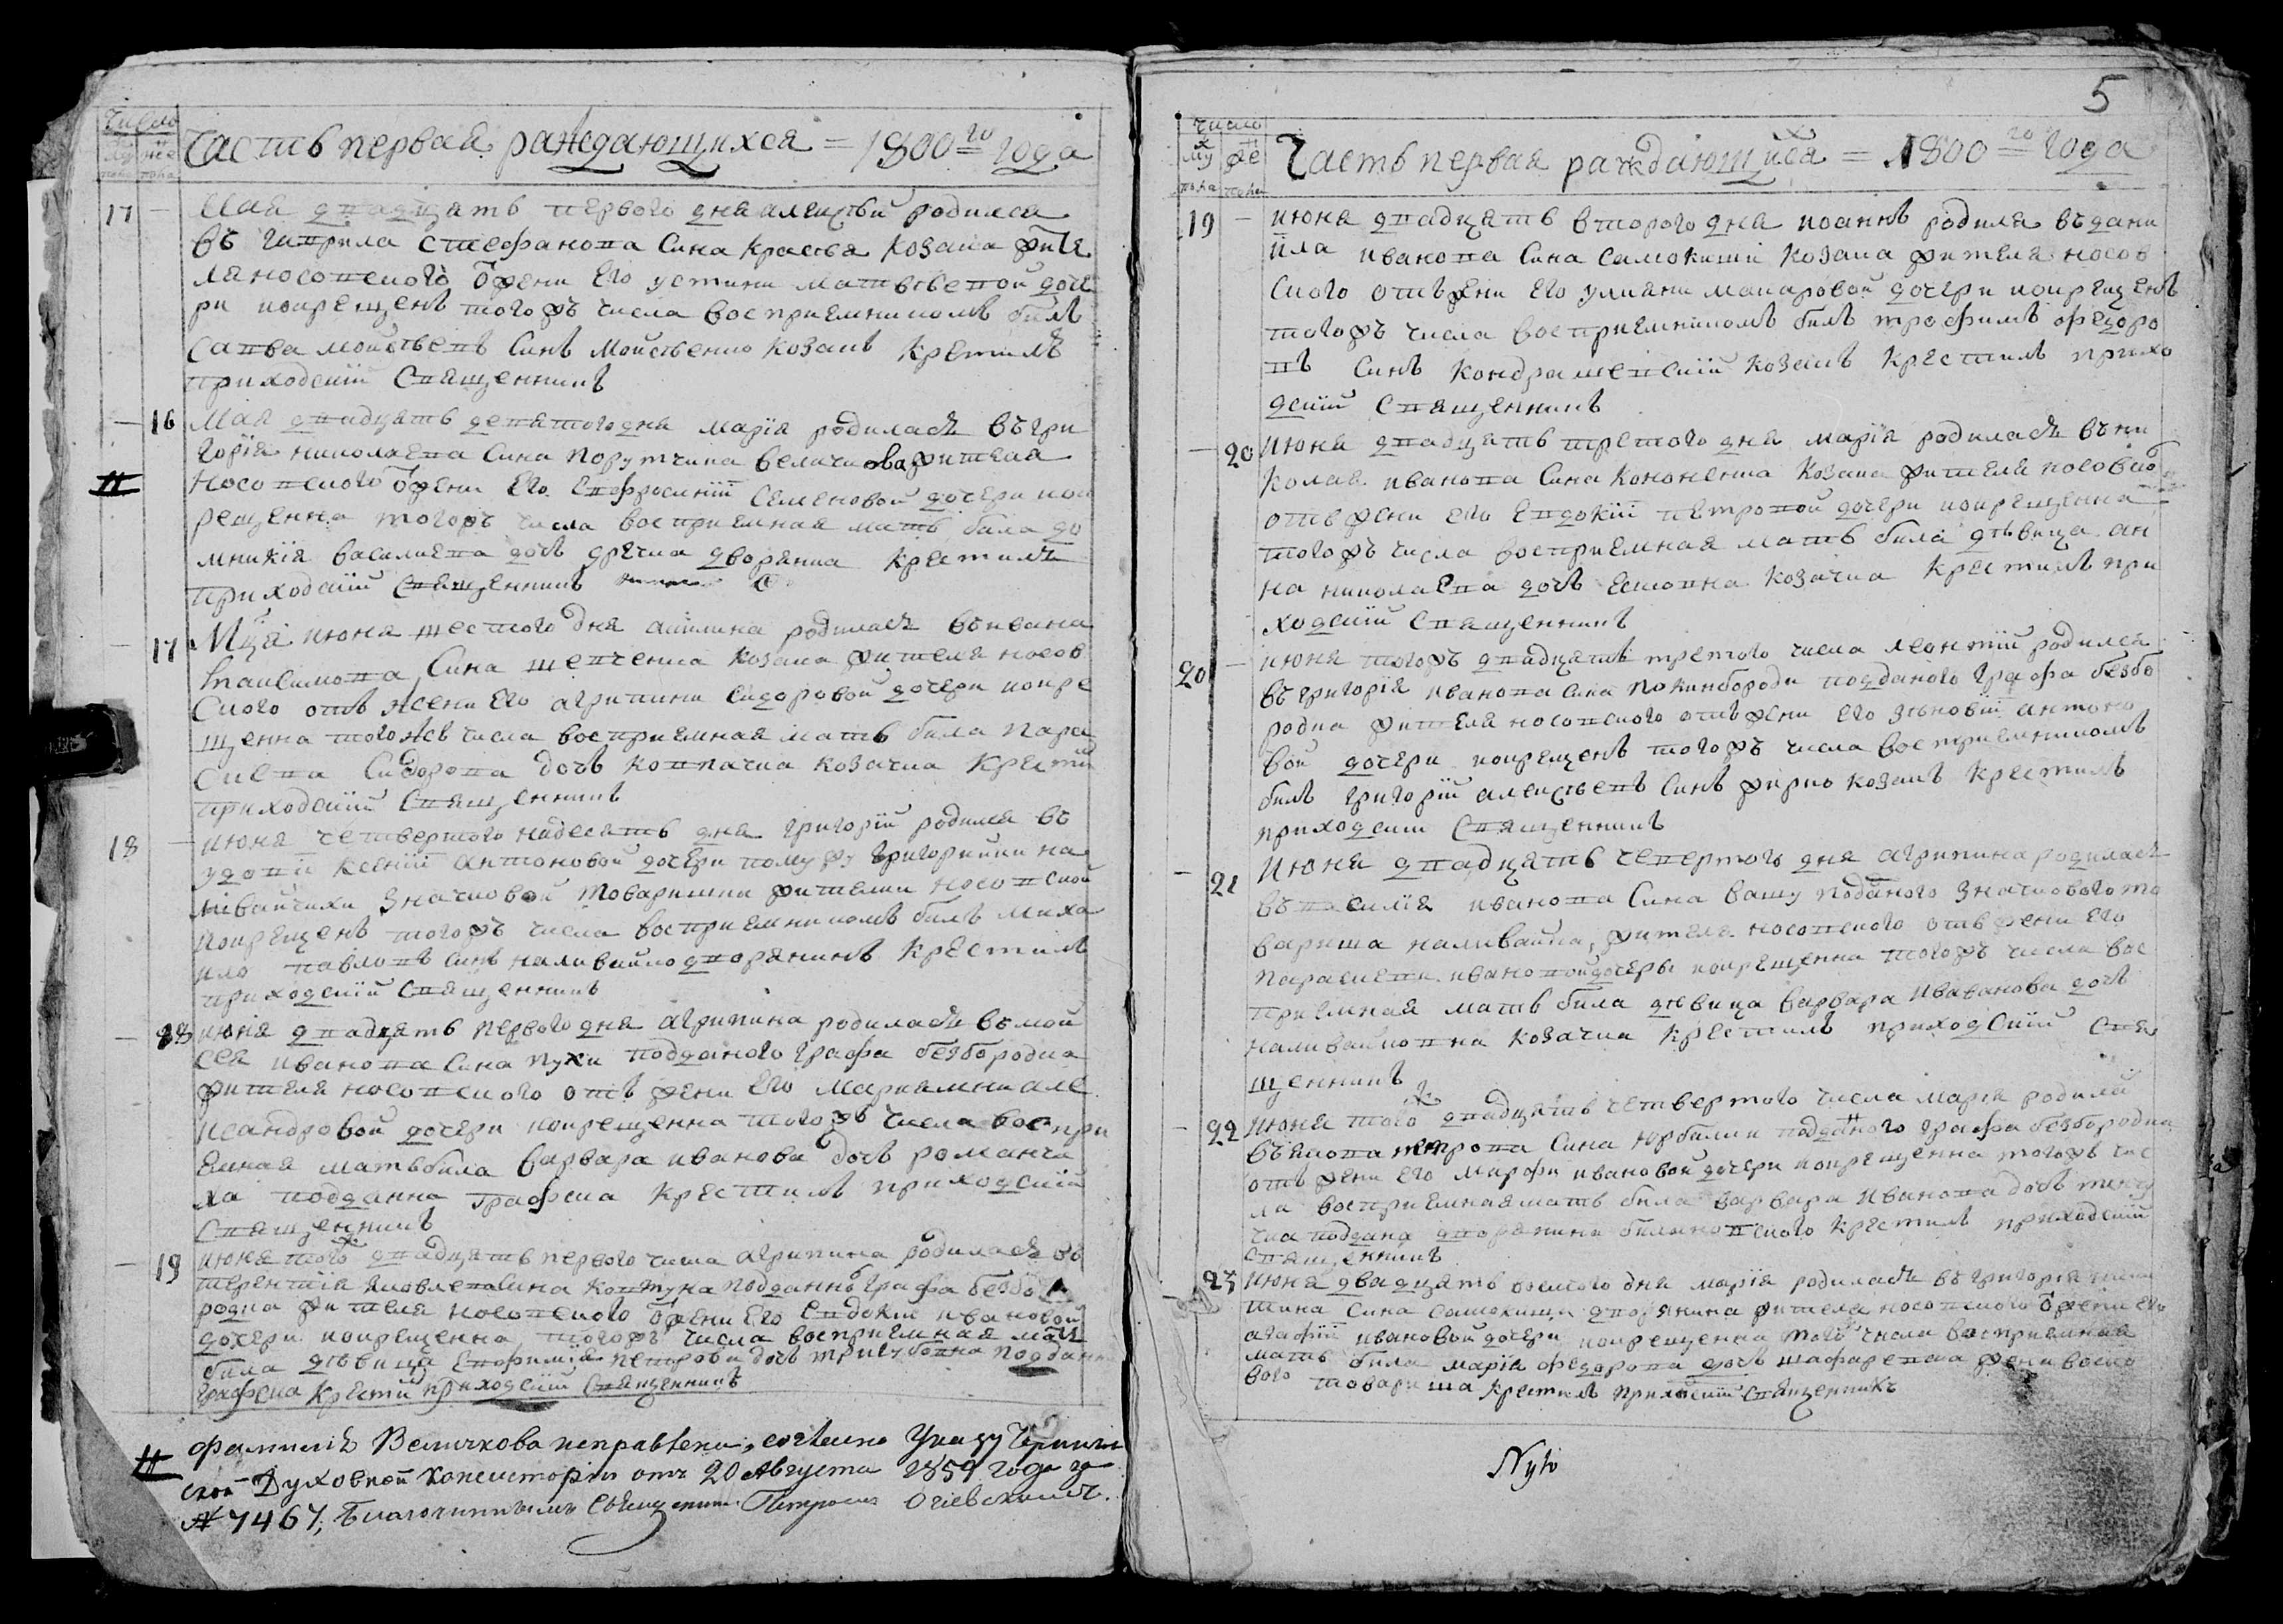 Число
Часть первая раждающихся = 1800 го года
17 Мая двадцять первого дня алексѣй родился
въ гаврила стефанова сина красъя козака жите
ля носовского от жени его устини матвѣевой доче
ри и окрещенъ тогожъ числа восприемникомъ билъ
савва мойсѣевъ синъ козакъ крестилъ
приходскій священникъ
16 Мая двадцять девятого дня марія родилась въ гри
горія николаева сина порутчика величкова жителя
носовского от жени его евфросиніи семеновой дочери и ок
рещенна тогожъ числа восприемная мать била до
мникія василиева дочь дворянка крестилъ
приходскій священникъ
17 Мца июня шестого дня акилина родилась въ ивана
максимова сина шевченка козака жителя носов
ского отъ жени его агрипини сидоровой дочери и окре
щенна тогожъ числа восприемная мать била парас
кева сидорова дочь козачка крестил
приходскій священникъ
18 июня четвертого надесять дня григорій родился въ
удови ксеніи антоновой дочери по мужу григорийки на
ливайчихи значковой товаришки жителки носовской
и окрещенъ тогожъ числа восприемникомъ билъ миха
ило павловъ синъ наливайко дворянинъ крестилъ
приходскій священникъ
18 июня двадцять первого дня агрипина родилась въ мой
сея иванова сина пухи подданого графа безбородка
жителя носовского отъ жени его мариямни але
ксандровой дочери и окрещенна тогожъ числа воспри
емная мать била варвара иванова дочь романчи
ха подданна графска крестилъ приходскій
священникъ
19 июня того ж двадцять первого числа агрипина родилась въ
терентія яковлева сина ковтуна подданого графа безбо
родка жителя носовского от жени его евдокіи ивановой
дочери и окрещенна тогожъ числа восприемная мать
била дѣвица евфимія петрова дочь тригубовна поддан
графска крестил приходскій священникъ
# фамилія Величкова исправлена, согласно Указу Чернигов
ской Духовной Консисторіи отъ 20 Августа 1859 года за
№ 7467, Благочиннымъ Священник. Петромъ Огіевскимъ.
5
число
му же
Часть первая раждающихся = 1800 го года
19 июня двадцять второго дня иоаннъ родился въ дани
ила иванова сина самокиши козака жителя носов
ского отъ жени его улияни макаровой дочери и окрещенъ
тогожъ числа восприемникомъ билъ трофимъ федоро
въ синъ козакъ крестилъ прихо
дскій священникъ
20 июня двадцять третого дня марія родилась въ ни
колая иванова сина кононенка козака жителя носовско
отъ жени его евдокіи петровой дочери и окрещенна
тогожъ числа восприемная мать била дѣвица ан
на николаева дочь козачка крестилъ при
ходскій священникъ
20 июня тогожъ двадцять третого числа леонтій родился
въ григорія иванова сина покинбороди подданого графа безбо
родка жителя носовского отъ жени его зѣновіи антоно
вой дочери и окрещенъ тогожъ числа восприемникомъ
билъ григорій алексѣевъ синъ козакъ крестилъ
приходскій священникъ
21 Июня двадцять чепертого дня агрипина родилась
въ василія иванова сина подданого значкового то
вариша наливайка, жителя носовского отъ жени его
параскеви ивановой дочери и окрещенна тогожъ числа вос
приемная мать била дѣвица варвара Ивановна дочь
наливайковна козачка крестилъ приходскій свя
щенникъ
22 июня того ж двадцять четвертого числа марія родилас
въ якова петрова сина подданого графа безбородка
отъ жени его марфи ивановой дочери и окрещенна тогожъ чис
ла восприемная мать била варвара Иванова дочь
подданна дворянина крестилъ приходскій
священникъ
23 июня двадцять осмого дня марія родилась въ григорія
сина самокиши дворянина жителя носовского от жени его
агафіи ивановой дочери и окрещенна того числа восприемная
мать била марія федорова дочь шафаренка жена воско
вого товариша крестилъ приходскій священникъ